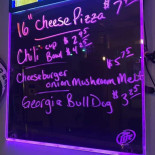 16" Cheese Pizza $7
Chili cup $2.95
Bowl $4.25
Cheeseburger $5.75
onion Mushroom Melt
Georgia BullDog $3.25